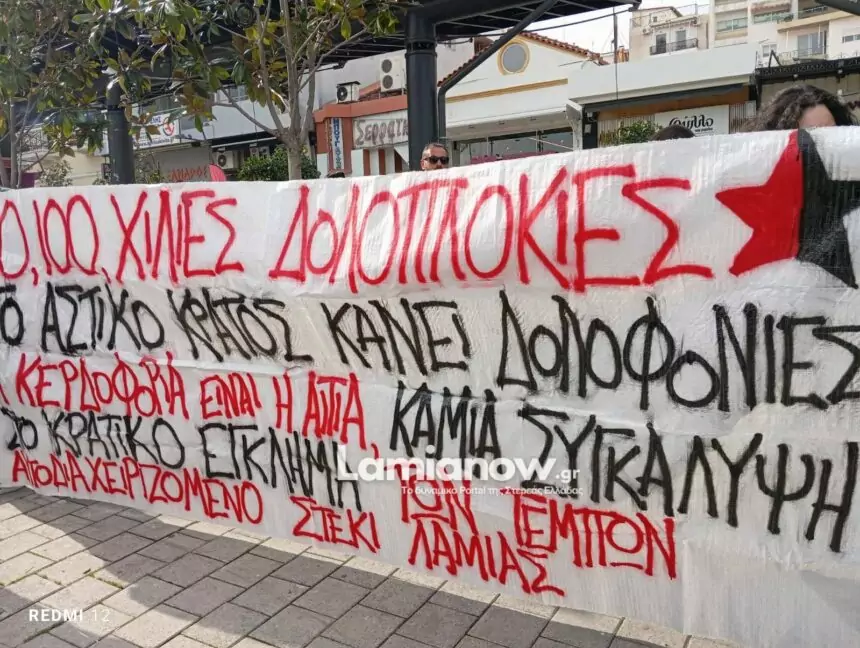 φύλλο
0, 100, ΧΙΛΙΕΣ ΔΟΛΟΠΛΟΚΙΕΣ
Ο ΑΣΤΙΚΟ ΚΡΑΤΟΣ ΚΑΝΕΙ ΔΟΛΟΦΟΝΙΕΣ
Η ΚΕΡΔΟΦΟΡΙΑ ΕΙΝΑΙ Η ΑΙΤΙΑ, ΚΑΜΙΑ ΣΥΓΚΑΛΥΨΗ
ΣΤΟ ΚΡΑΤΙΚΟ ΕΓΚΛΗΜΑ ΤΩΝ ΤΕΜΠΩΝ
ΑΥΤΟΔΙΑΧΕΙΡΙΖΟΜΕΝΟ ΣΤΕΚΙ ΛΑΜΙΑΣ
Lamianow.gr
Το δυναμικό Portal της Στερεάς Ελλάδας
REDMI 12